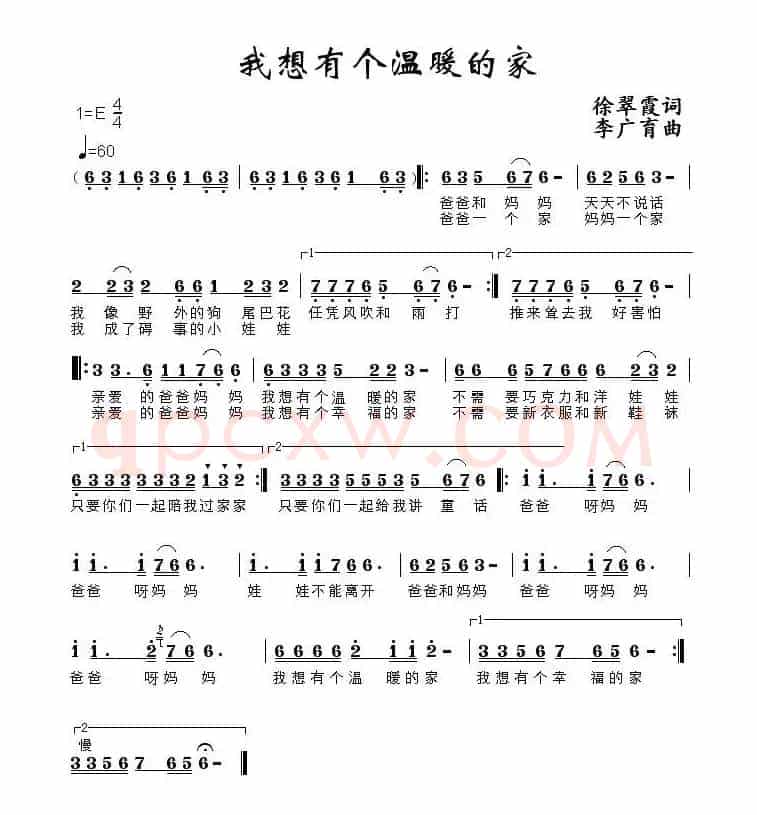 我想有个温暖的家
1=E 4/4
徐翠霞词
♩=60
李广育曲
(6 3 1 6 3 6 1 6 3 | 6 3 1 6 3 6 1 6 3) ‖: 6 3 5 6 7 6 - | 6 2 5 6 3 - |
爸爸和 妈妈 天天不说话
爸爸一 个家 妈妈一个家
1 2
2 2 3 2 6 6 1 2 3 2 | 7 7 7 6 5 6 7 6 - :‖ 7 7 7 6 5 6 7 6 - |
我 像野 外的狗 尾巴花 任凭风吹和 雨打 推来耸去我 好害怕
我 成了碍 事的小 娃娃
‖: 3 3 . 6 1 1 7 6 6 | 6 3 3 3 3 5 2 2 3 - | 6 6 6 5 7 6 6 6 2 3 2 |
亲爱 的爸爸妈妈 我想有个温 暖的家 不需 要巧克力和洋 娃娃
亲爱 的爸爸妈妈 我想有个幸 福的家 不需 要新衣服和新 鞋袜
qpcxw.COM
1 2
6 3 3 3 3 3 3 3 2 1 3 2 :‖ 3 3 3 3 5 5 5 3 5 6 7 6 | i i . i 7 6 6 . |
只要你们一起陪我过家家 只要你们一起给我讲 童话 爸爸 呀妈妈
i i . i 7 6 6 . | i i i 7 6 6 . | 6 2 5 6 3 - | i i . i 7 6 6 . |
爸爸 呀妈妈 娃 娃不能离开 爸爸和妈妈 爸爸 呀妈妈
1
i i . 2 7 6 6 . | 6 6 6 6 2 i i 2 - | 3 3 5 6 7 6 5 6 - :‖
爸爸 呀妈妈 我想有个温 暖的家 我想有个幸 福的家
2
慢
3 3 5 6 7 6 5 6 - ‖